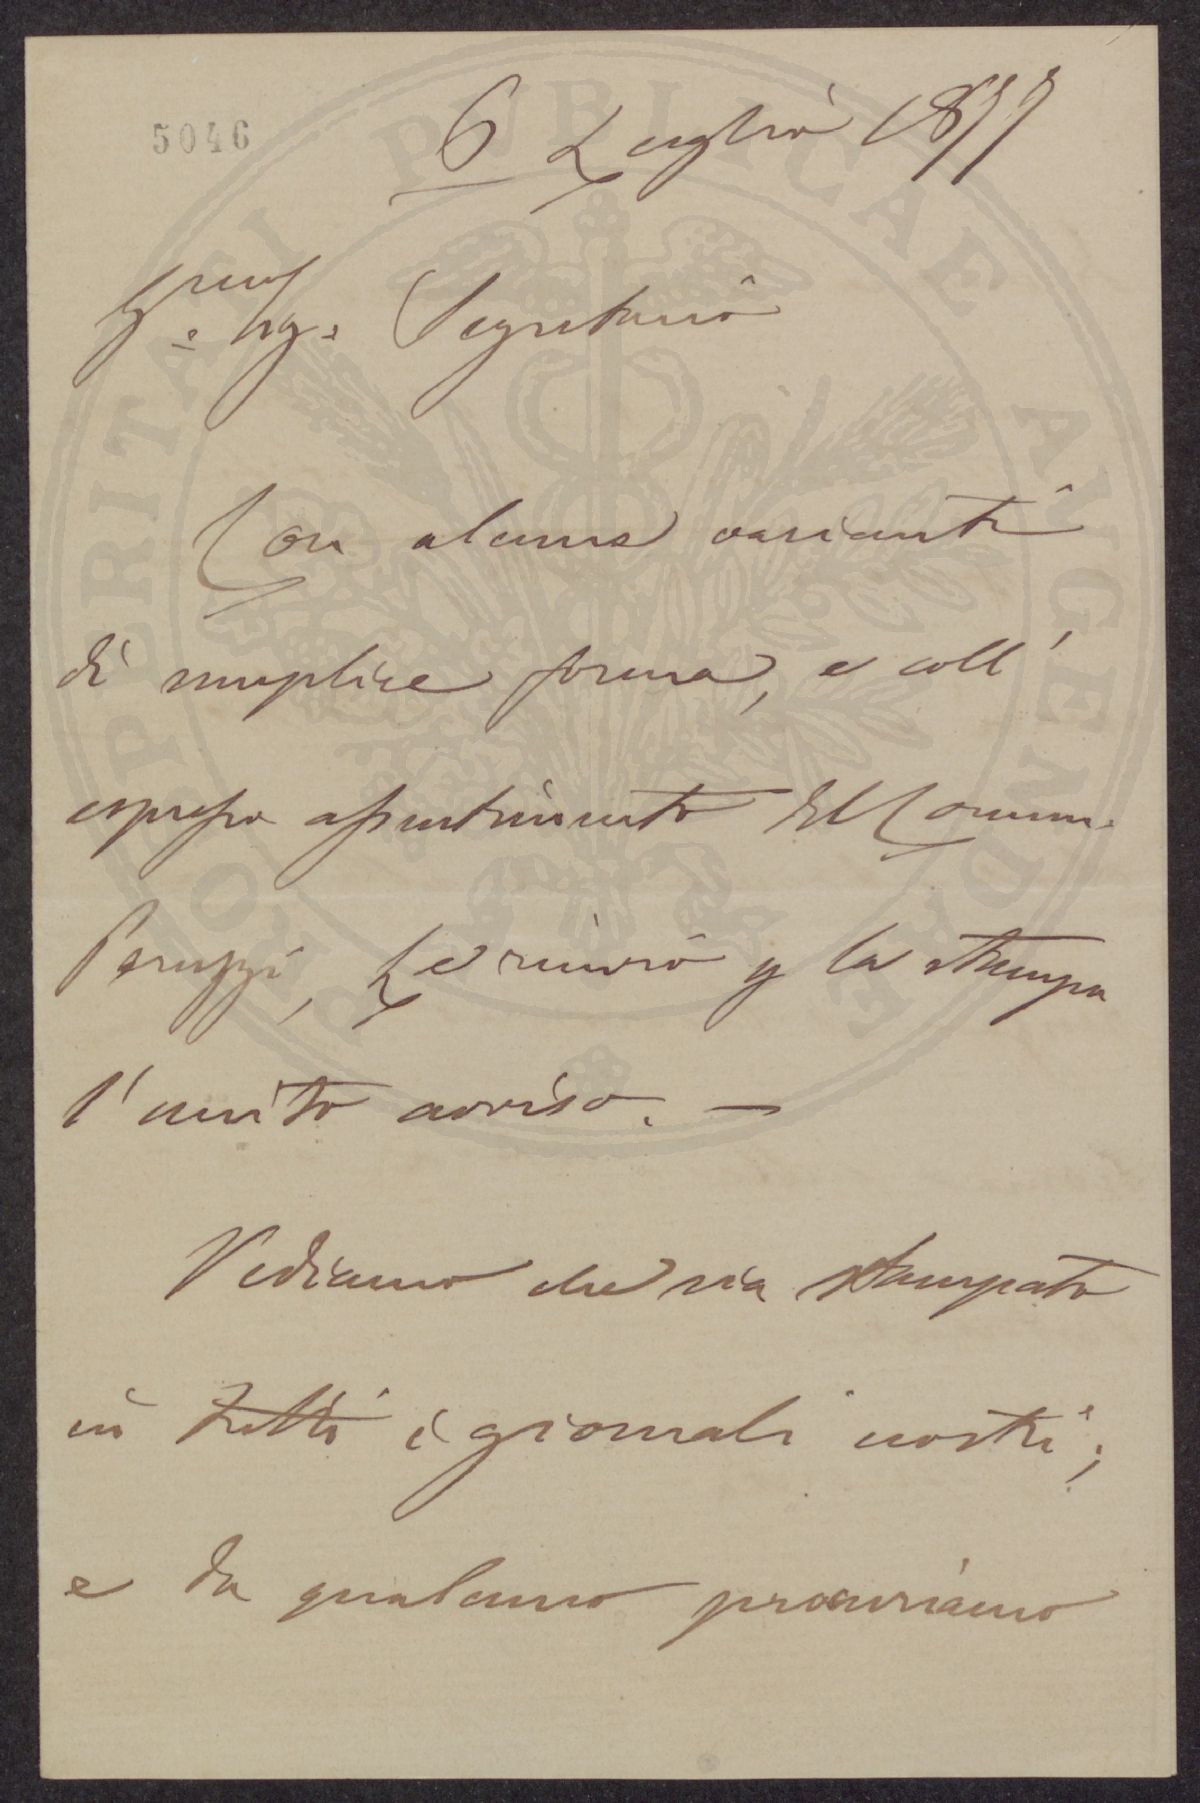 5046
6 Luglio 1877
Sig.e Segretario
Con alcune varianti
di semplice forma, e coll'
espresso assentimento del Comm.
Peruzzi, Le rinvio p la stampa
l'unito avviso. —
Vediamo che sia stampato
in tutti i giornali nostri;
e da qualcuno procuriamo
PROSPERITATI PUBLICAE AUGENDAE